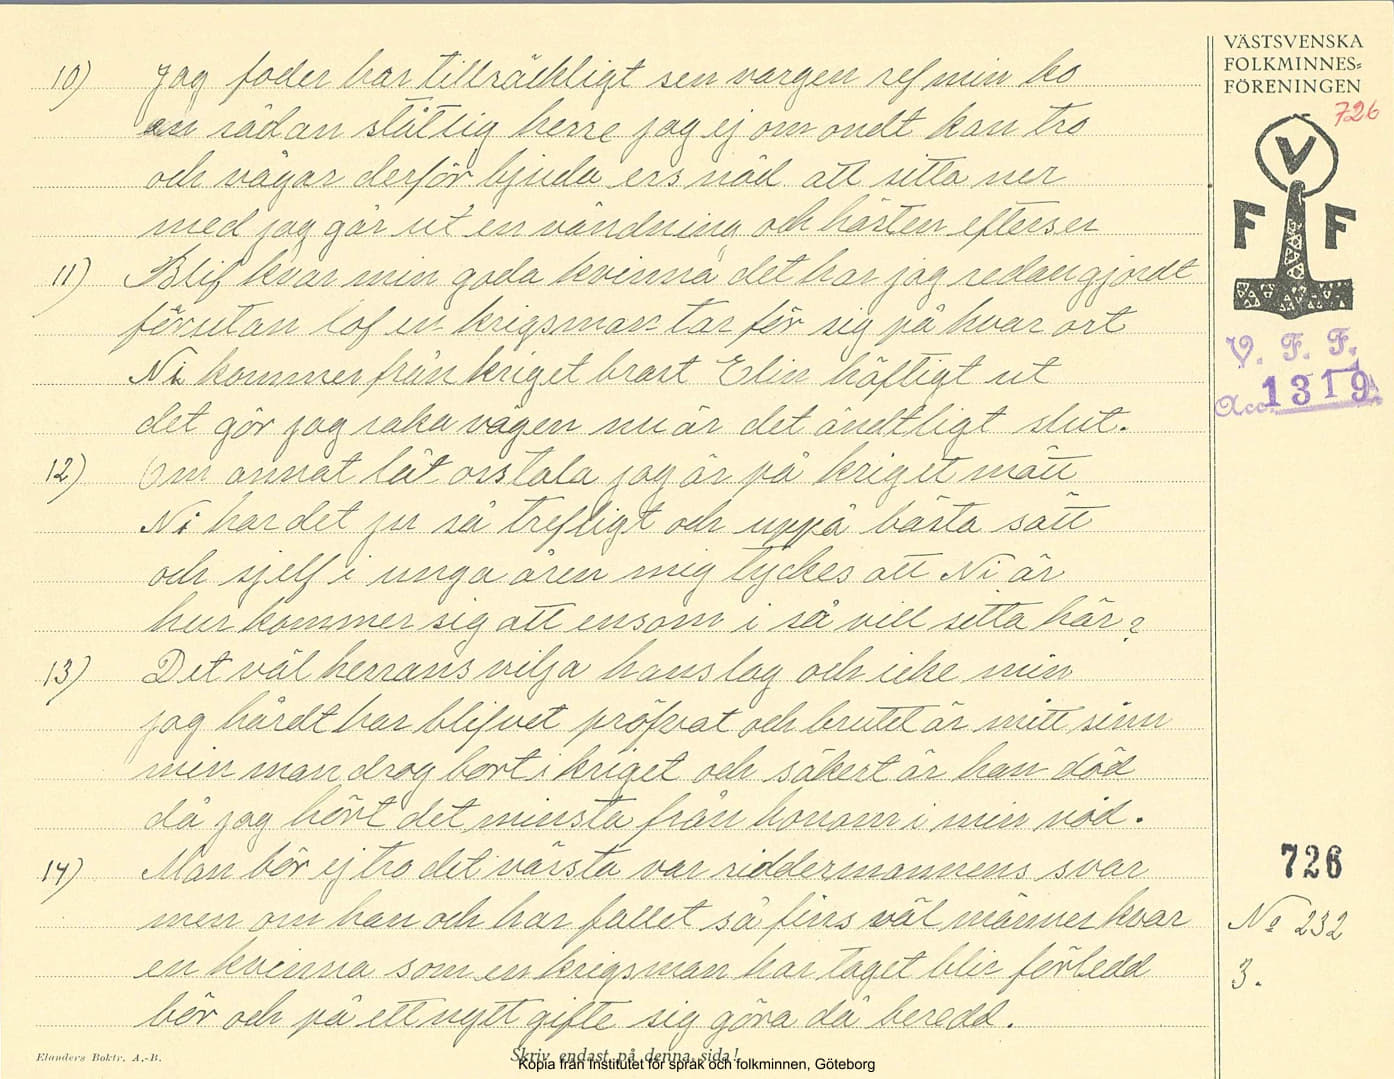 VÄSTSVENSKA
FOLKMINNES=
FÖRENINGEN
726
V
F F
V. F. F.
Acc. 1319
10) Jag foder har tillräckligt sen vargen ref min ko
en sådan ståtlig herre jag ej om ondt kan tro
och vågar derför bjuda ers nåd att sitta ner
med jag går ut en vändning och hästen efterser
11) Blif kvar min goda kvinna det har jag redan gjordt
förutan lof en krigsman tar för sig på hvar ort
Ni kommer från kriget brast Elin häftigt ut
det gör jag raka vägen nu är det ändtligt slut.
12) Om annat låt oss tala jag är på kriget mätt
Ni har det ju så trefligt och uppå bästa sätt
och sjelf i unga åren mig tyckes att Ni är
hur kommer sig att ensam i så vill sitta här?
13) Det väl herrans vilja hans lag och icke min
jag hårdt har blifvet pröfvat och brutet är mitt sinn
min man drog bort i kriget och säkert är han död
då jag hört det minsta från honom i min nöd.
14) Man bör ej tro det värsta var riddermannens svar
men om han och har fallet så fins väl männer kvar
en kvinna som en krigsman har taget blir förledd
bör och på ett nytt gifte sig göra då beredd.
726
No 232
3.
Elanders Boktr. A.-B.
Skriv endast på denna sida!
Kopia från Institutet för språk och folkminnen, Göteborg